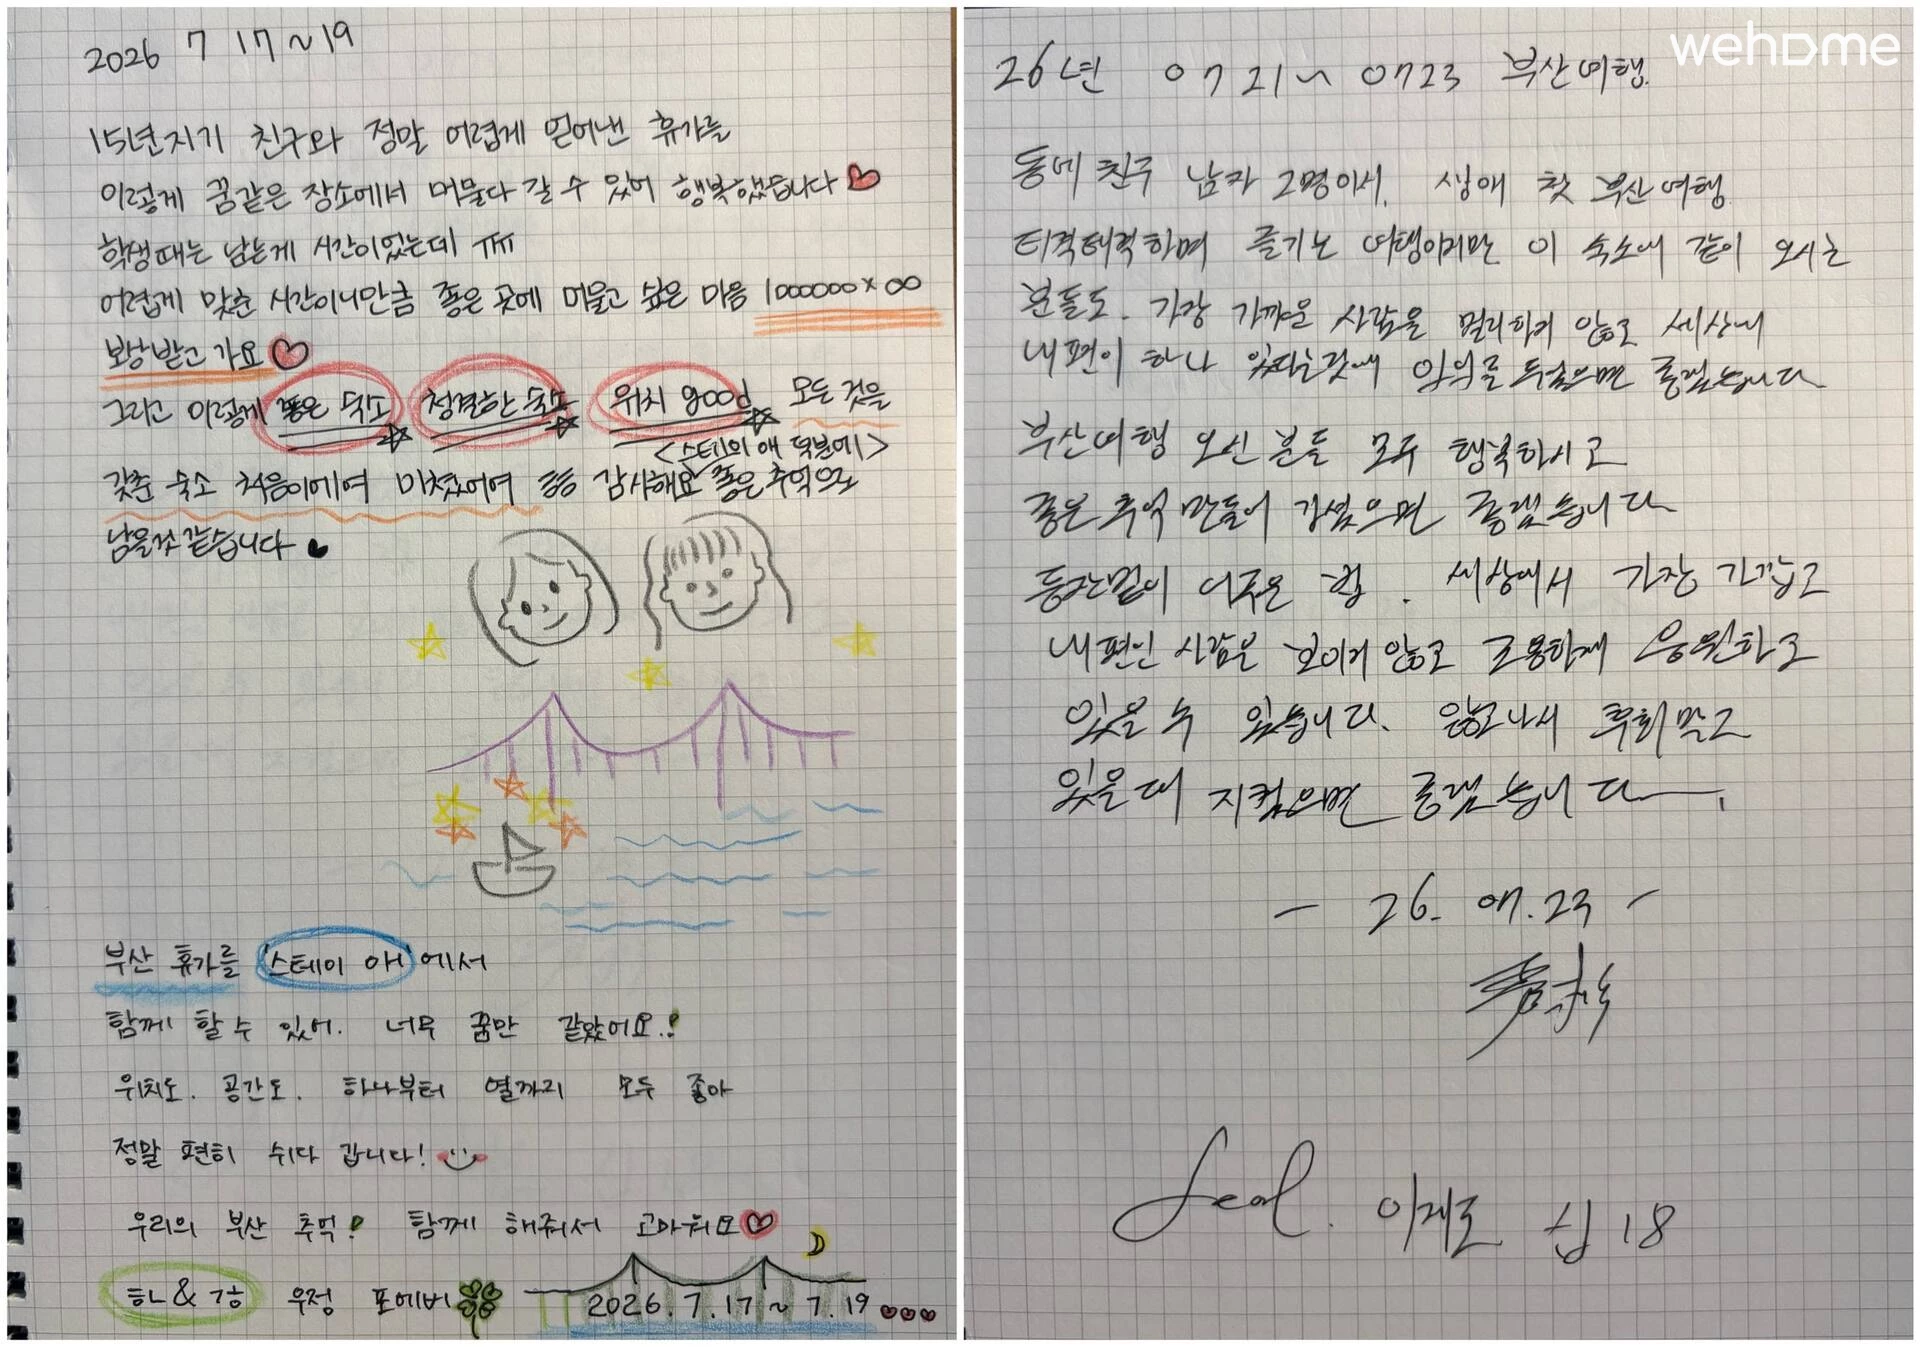 2026 7 17~19
15년지기 친구와 정말 어렵게 얻어낸 휴가를
이렇게 꿈같은 장소에서 머물다 갈 수 있어 행복했습니다
학생때는 남는게 시간이었는데 ㅠㅠ
어렵게 맞춘 시간이니만큼 좋은 곳에 머물고 싶은 마음 1000000×∞
보상받고 가요
그리고 이렇게 좋은 숙소 청결한 숙소 위치 good 모든 것을
<스테이의 애 덕분에>
갖춘 숙소 처음이에여 미쳤어여 감사해요 좋은추억으로
남을것같습니다
부산 휴가를 '스테이 애'에서
함께 할 수 있어. 너무 꿈만 같았어요.!
위치도. 공간도. 하나부터 열까지 모두 좋아
정말 편히 쉬다 갑니다!
우리의 부산 추억! 함께 해줘서 고마워요
하ㄴ&ㄱㅎ 우정 포에버
2026.7.17~7.19
wehome
26년 0721~0723 부산여행.
동네친구 남자 2명이서, 생애 첫 부산여행
티격태격하며 즐기는 여행이지만 이 숙소에 같이 오시는
분들도. 가장 가까운 사람을 멀리하지 않고 세상에
내편이 하나 있다는것에 위로를 두셨으면 좋겠습니다
부산여행 오신분들 모두 행복하시고
좋은추억 만들어 가셨으면 좋겠습니다
등잔밑이 어두운 법. 세상에서 가장 가깝고
내편인 사람은 보이지 않고 조용하게 응원하고
있을 수 있습니다. 잃고나서 후회말고
있을때 지켰으면 좋겠습니다.
- 26. 07.23 -
Seal. 이제도 십18